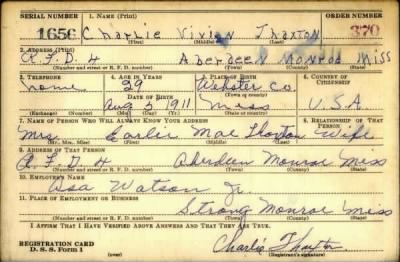 SERIAL NUMBER 1. NAME (Print) ORDER NUMBER
1656 Charlie Vivian Thaxton 370
(First) (Middle) (Last)
2. ADDRESS (Print)
R.F.D. 4 Aberdeen Monroe Miss
(Number and street or R. F. D. number) (Town) (County) (State)
3. TELEPHONE 4. AGE IN YEARS 5. PLACE OF BIRTH 6. COUNTRY OF CITIZENSHIP
none 29 Webster Co.
DATE OF BIRTH (Town or county)
Aug 5 1911 Miss U.S.A.
(Exchange) (Number) (Mo.) (Day) (Yr.) (State or country)
7. NAME OF PERSON WHO WILL ALWAYS KNOW YOUR ADDRESS 8. RELATIONSHIP OF THAT PERSON
Mrs. Earlie Mae Thaxton Wife
(Mr., Mrs., Miss) (First) (Middle) (Last)
9. ADDRESS OF THAT PERSON
R.F.D. 4 Aberdeen Monroe Miss
(Number and street or R. F. D. number) (Town) (County) (State)
10. EMPLOYER'S NAME
Asa Watson Jr.
11. PLACE OF EMPLOYMENT OR BUSINESS
Strong Monroe Miss
(Number and street or R. F. D. number) (Town) (County) (State)
I AFFIRM THAT I HAVE VERIFIED ABOVE ANSWERS AND THAT THEY ARE TRUE.
REGISTRATION CARD Charlie Thaxton
D. S. S. Form 1 (over) (Registrant's signature)